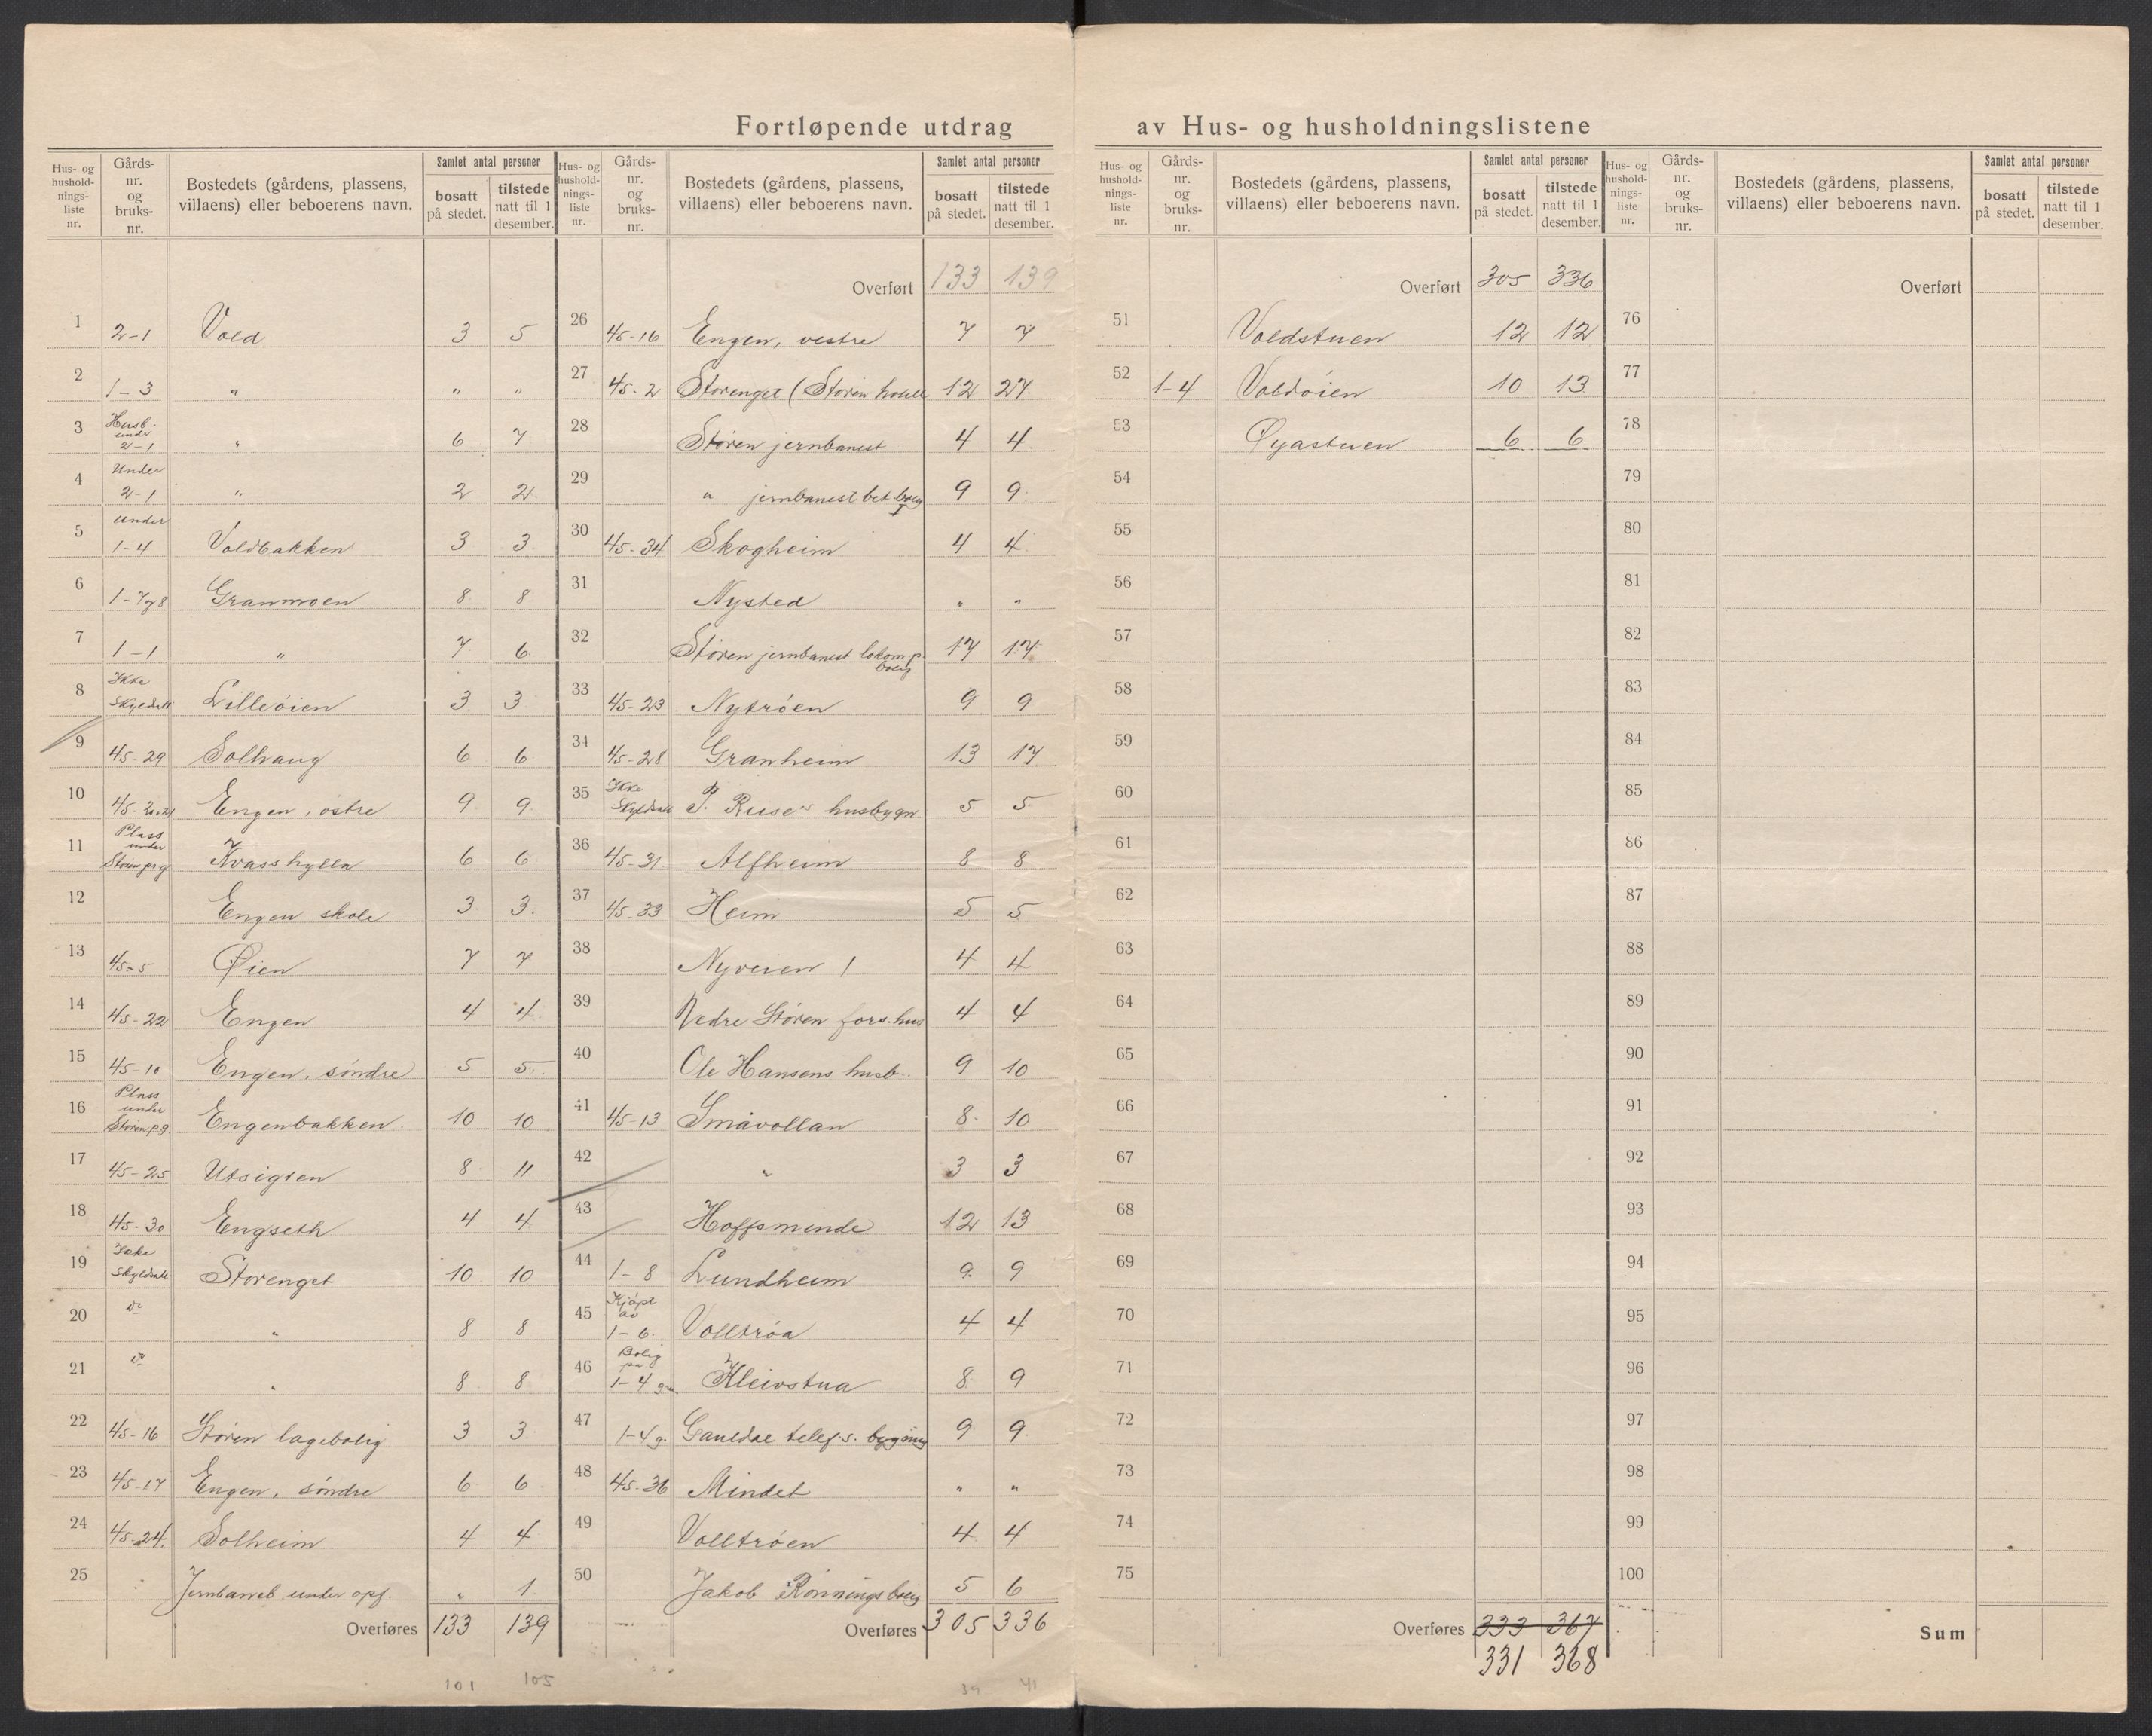 Fortløpende utdrag av Hus- og husholdningslistene
Hus- og husholdnings-liste nr. | Gårds-nr. og bruks-nr. | Bostedets (gårdens, plassens, villaens) eller beboerens navn. | Samlet antal personer | bosatt på stedet. | tilstede natt til 1 desember.
1 2-1 Vold 3 5
2 1-3 " " "
3 Husb. under 2-1 " 6 7
4 Under 2-1 " 2 2
5 under 1-4 Voldbakken 3 3
6 1-7og8 Granmoen 8 8
7 1-1 " 7 6
8 Ikke Skyldsatt Lilleöien 3 3
9 45-29 Solhaug 6 6
10 45-20.21 Engen, östre 9 9
11 Plass under Stören prg Kvasshylla 6 6
12 Engen skole 3 3.
13 45-5 Øien 7 7
14 45-22 Engen 4 4
15 45-10 Engen, söndre 5 5
16 Plass under Stören pg. Engenbakken 10 10
17 45-25 Utsigten 8 11
18 45-30 Engseth 4 4
19 Ikke Skyldsatt Storenget 10 10
20 do " 8 8
21 do " 8 8
22 45-16 Stören lægebolig 3 3
23 45-17 Engen, söndre 6 6
24 45-24. Solheim 4 4
25 Jernbaneb. under opf. " 1
Overføres 133 139
101 105
Hus- og husholdnings-liste nr. | Gårds-nr. og bruks-nr. | Bostedets (gårdens, plassens, villaens) eller beboerens navn. | Samlet antal personer | bosatt på stedet. | tilstede natt til 1 desember.
Overført 133 139
26 45-16 Engen, vestre 7 7
27 45-2 Storenget (Stören hotell 12 27
28 Stören jernbanest 4 4
29 " jernbanest bet bolig I 9 9
30 45-34 Skogheim 4 4
31 Nysted " "
32 Stören jernbanest lokom.p. bolig 17 17
33 45-23 Nytröen 9 9
34 45-28 Granheim 13 17
35 Ikke Skyldsatt P. Ruses husbygn 5 5
36 45-31 Alfheim 8 8
37 45-33 Heim 5 5
38 Nyveien 1 4 4
39 Nedre Stören fors.hus 4 4
40 Ole Hansens husb.. 9 10
41 45-13 Småvollan 8 10
42 " 3 3
43 Hoffsminde 12 13
44 1-8 Lundheim 9 9
45 Kjöpt av 1-6. Volltröa 4 4
46 Bolig på 1-4 Kleivstua 8 9
47 1-4 g. Gauldal telef.s. bygning 9 9
48 45-36 Mindet " "
49 Volltröen 4 4
50 Jakob Rönnings bolig 5 6
Overføres 305 336
39 41
Hus- og husholdnings-liste nr. | Gårds-nr. og bruks-nr. | Bostedets (gårdens, plassens, villaens) eller beboerens navn. | Samlet antal personer | bosatt på stedet. | tilstede natt til 1 desember.
Overført 305 336
51 Voldstuen 12 12
52 1-4 Voldöien 10 13
53 Øyastuen 6 6
54
55
56
57
58
59
60
61
62
63
64
65
66
67
68
69
70
71
72
73
74
75
Overføres 333 367
331 368
Hus- og husholdnings-liste nr. | Gårds-nr. og bruks-nr. | Bostedets (gårdens, plassens, villaens) eller beboerens navn. | Samlet antal personer | bosatt på stedet. | tilstede natt til 1 desember.
Overført
76
77
78
79
80
81
82
83
84
85
86
87
88
89
90
91
92
93
94
95
96
97
98
99
100
Sum